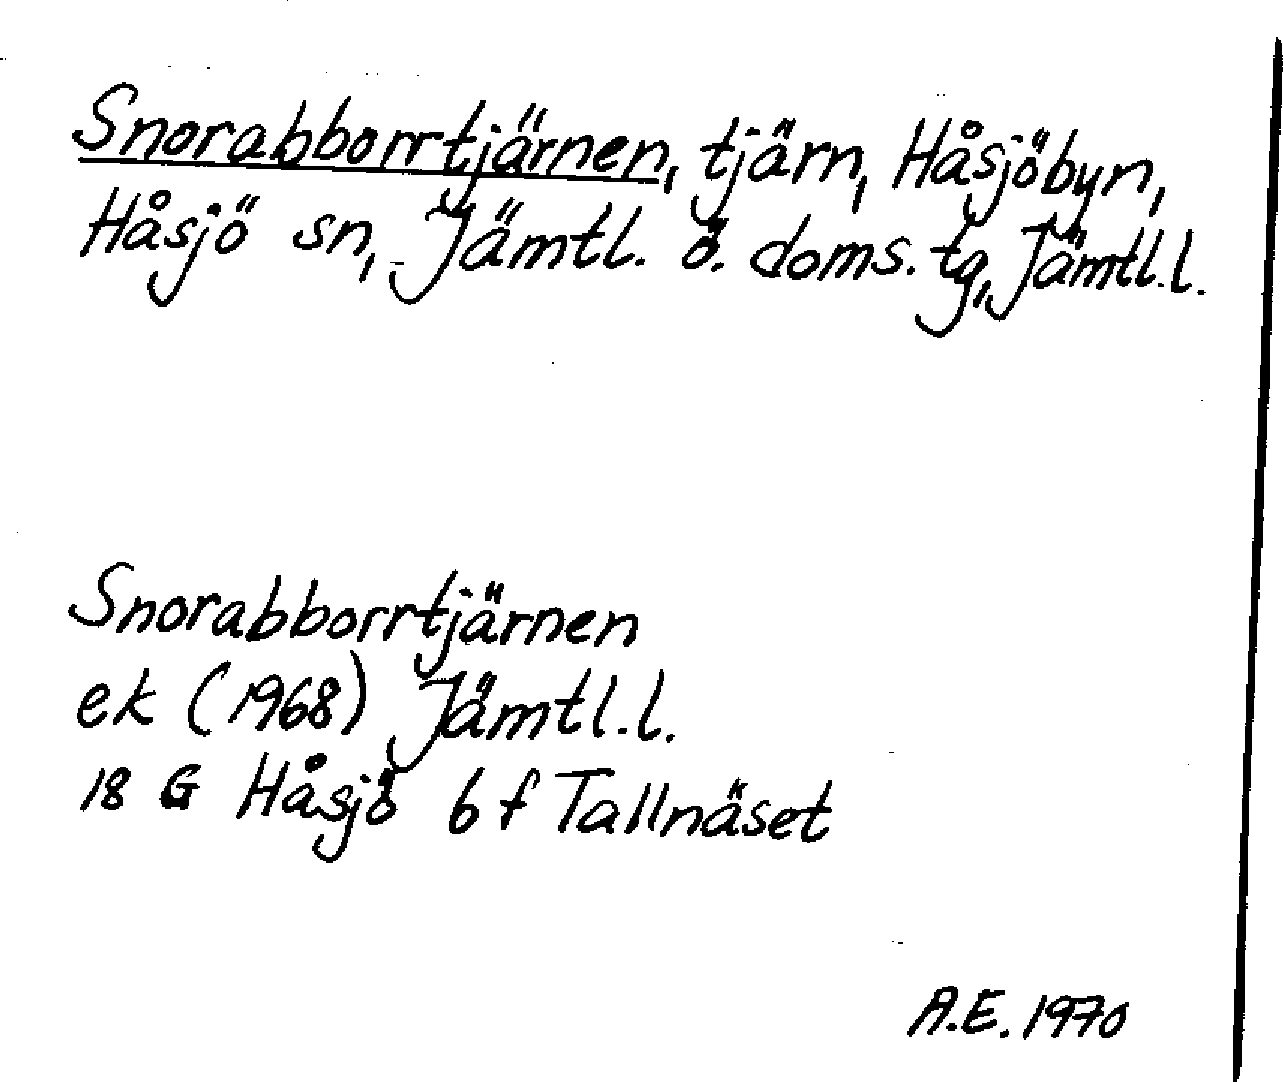 Snorabborrtjärnen, tjärn, Håsjöbyn,
Håsjö sn, Jämtl. ö. doms. tg, Jämtl.l.
Snorabborrtjärnen
ek (1968) Jämtl.l.
18 G Håsjö 6 f Tallnäset
A.E. 1970